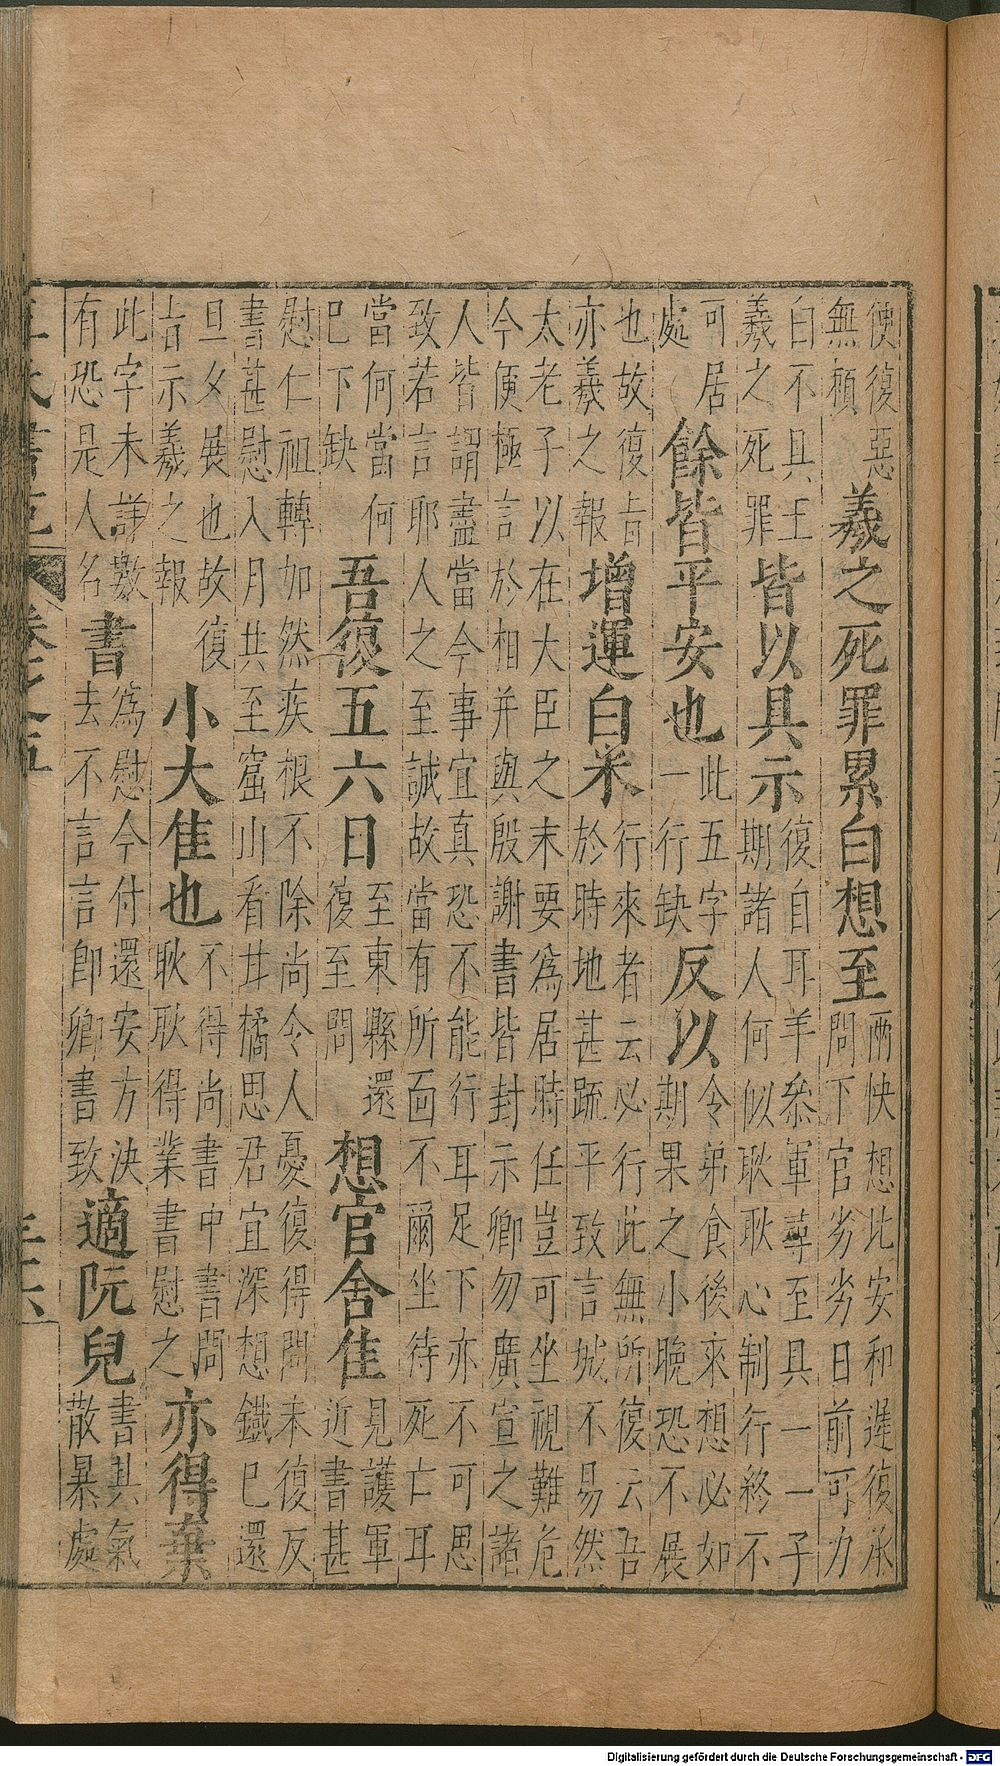 便復惡
無頼
羲之死罪累白想至
兩快想比安和遲復承
問下官劣劣日前可力
白不具王
羲之死罪
皆以具示
復自耳羊叅軍尋至具一一子
期諸人何似耿耿心制行終不
可居
處
餘皆平安也
此五字
一行缺
反以
令弟食後來想必如
期果之小晚恐不展
也故復旨
亦羲之報
增運白米
行來者云必行此無所復云吾
於時地甚疏平致言城不易然
太老子以在大臣之末要爲居時任豈可坐視難危
今便極言於相并與殷謝書皆封示卿勿廣宣之諸
人皆謂盡當今事宜真恐不能行耳足下亦不可思
致若言耶人之至誠故當有所面不爾坐待死亡耳
當何當何
巳下缺
吾復五六日
至東縣還
復至問
想官舍佳
見護軍
近書甚
慰仁祖轉加然疾根不除尚令人憂復得問未復反
書甚慰入月共至窟山看甘橘思君宜深想鐵已還
旦夕展也故復
旨示羲之報
小大佳也
不得尚書中書問
耿耿得業書慰之
亦得葉
此字未詳數
有恐是人名
書
爲慰今付還安方決
去不言言即卿書致
適阮兒
書其氣
散暴處
王氏書苑
Digitalisierung gefördert durch die Deutsche Forschungsgemeinschaft - DFG